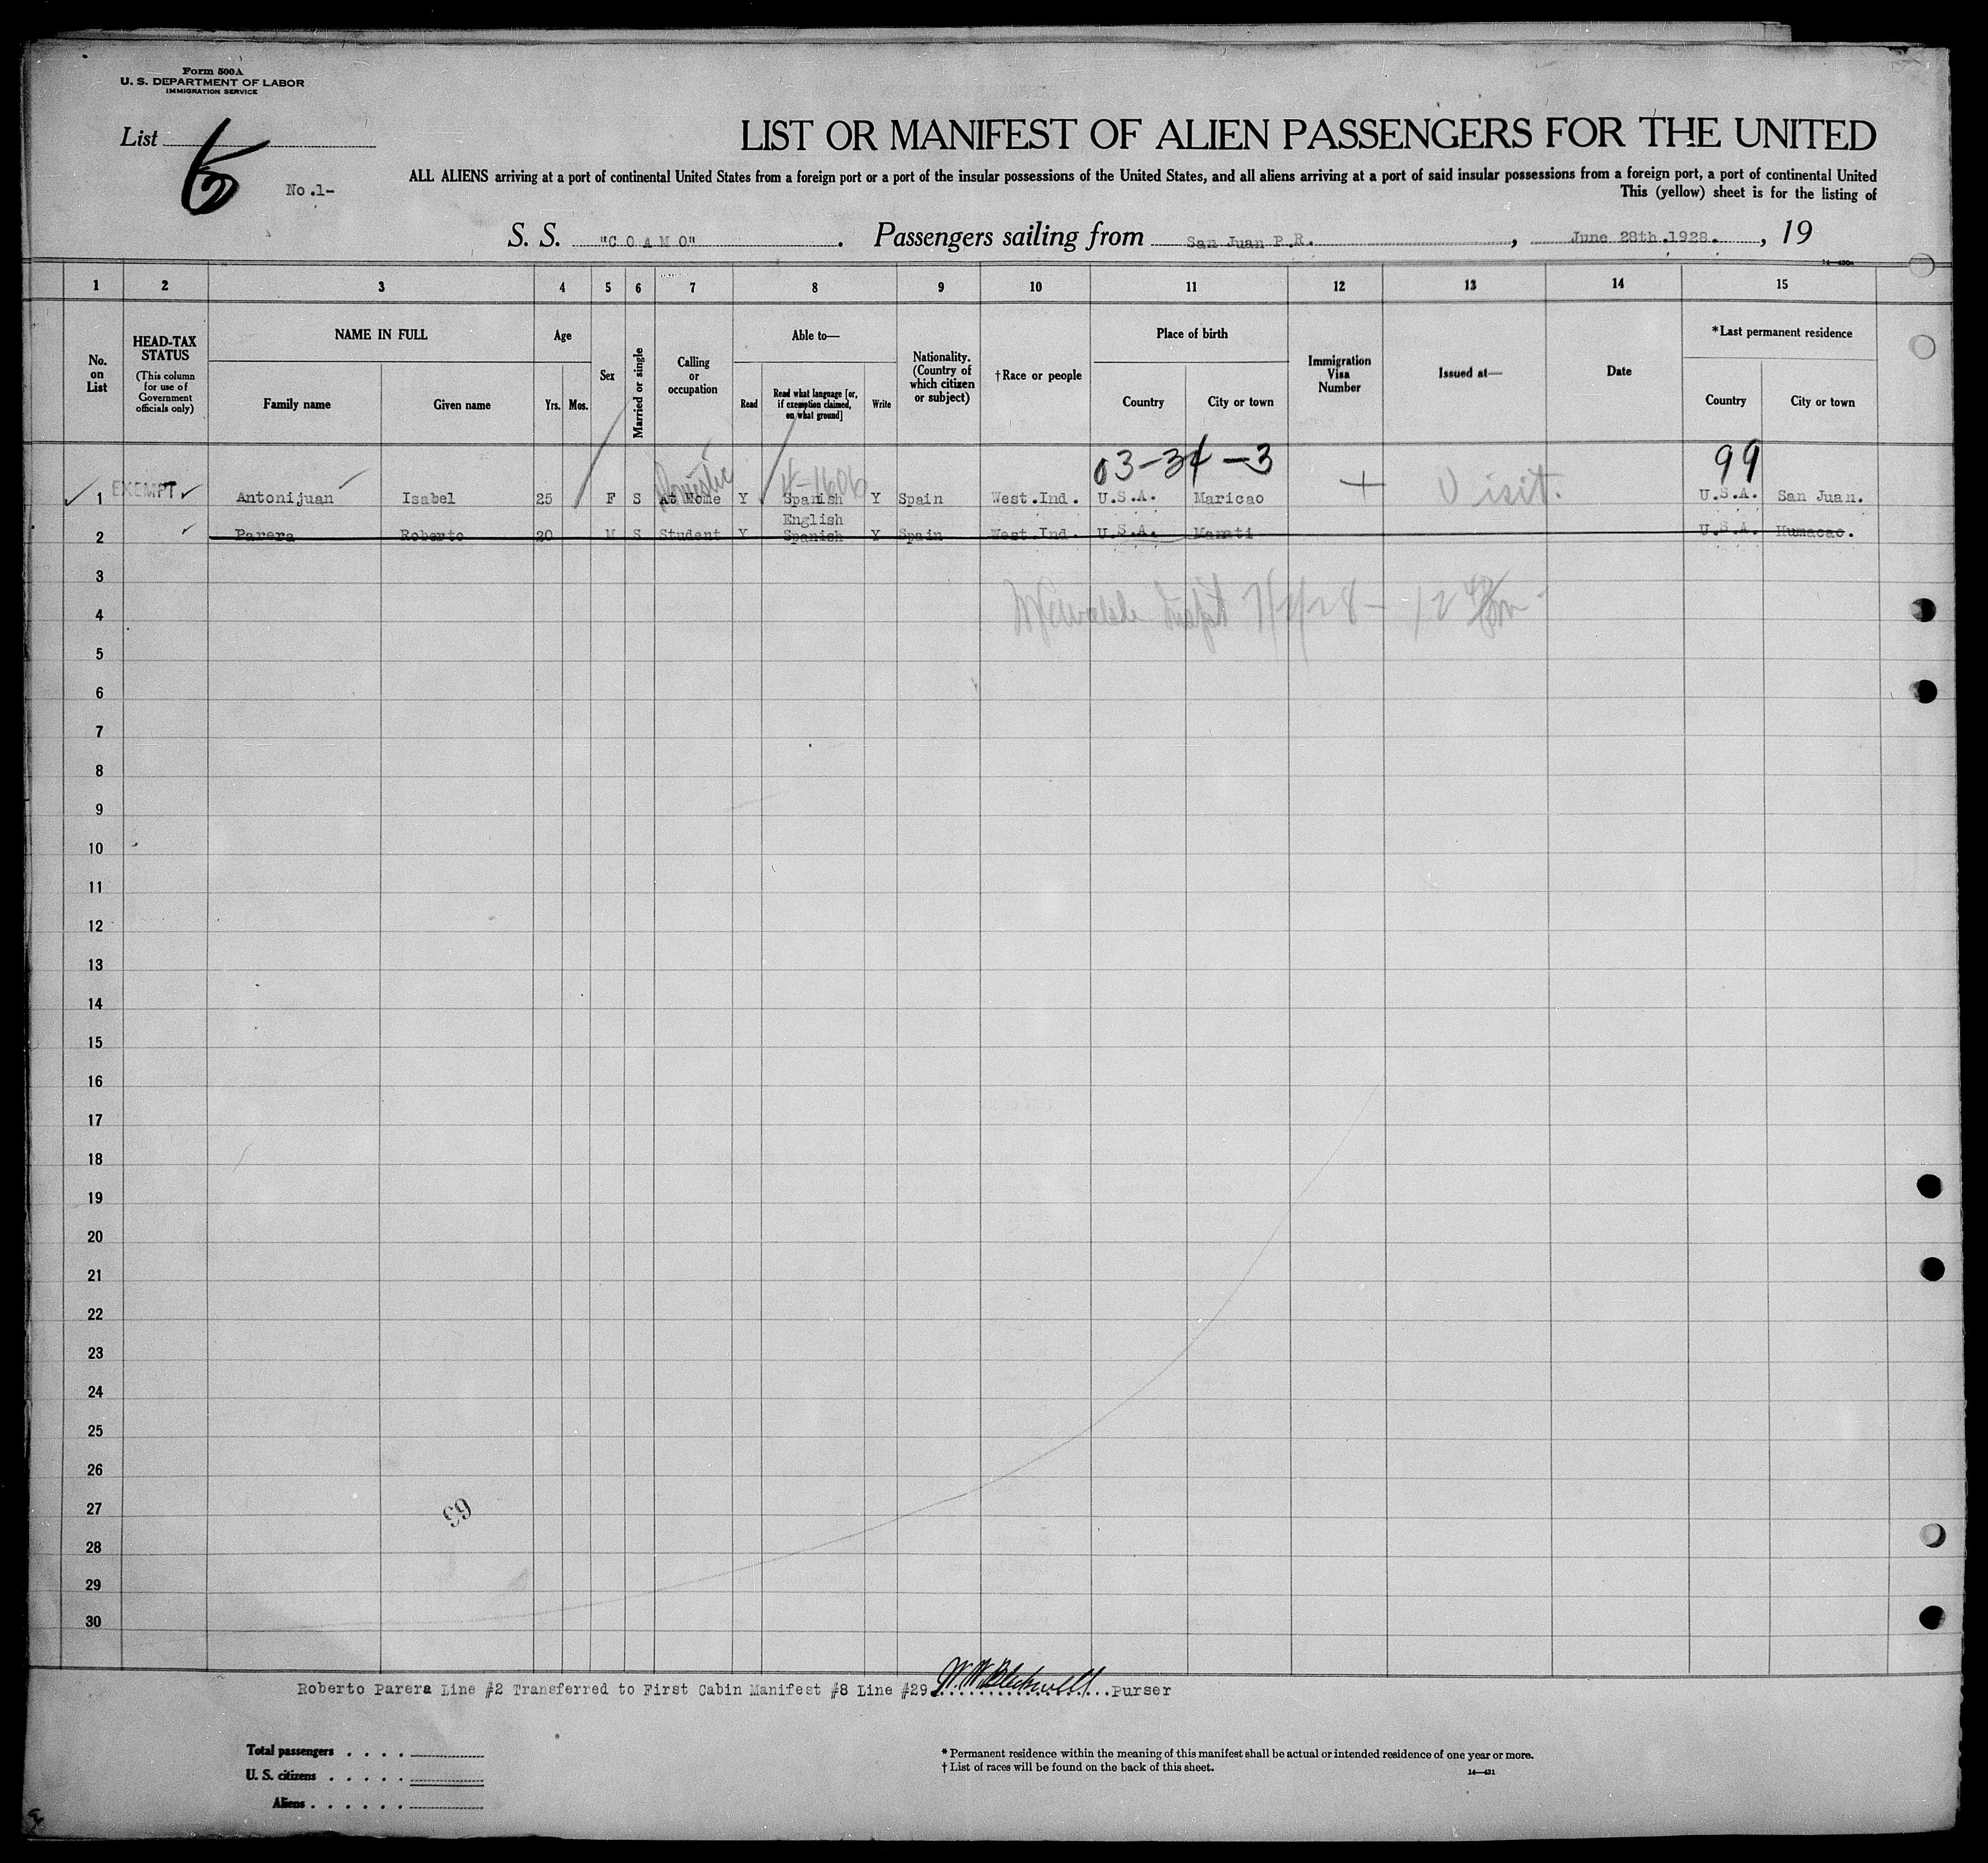 Form 500A
U. S. DEPARTMENT OF LABOR
IMMIGRATION SERVICE
List
No.1-
LIST OR MANIFEST OF ALIEN PASSENGERS FOR THE UNITED
ALL ALIENS arriving at a port of continental United States from a foreign port or a port of the insular possessions of the United States, and all aliens arriving at a port of said insular possessions from a foreign port, a port of continental United
This (yellow) sheet is for the listing of
S. S. "C O A M O". Passengers sailing from San Juan P.R., June 28th.1928., 19
14—430a
1 2 3 4 5 6 7 8 9 10 11 12 13 14 15
No. on List
HEAD-TAX STATUS
(This column for use of Government officials only)
NAME IN FULL
Family name Given name
Age
Yrs. Mos.
Sex
Married or single
Calling or occupation
Able to—
Read
Read what language [or, if exemption claimed, on what ground]
Write
Nationality. (Country of which citizen or subject)
†Race or people
Place of birth
Country City or town
Immigration Visa Number
Issued at—
Date
*Last permanent residence
Country City or town
03-34-3 99
Domestic
1 EXEMPT Antonijuan Isabel 25 F S At Home Y Spanish Y Spain West.Ind. U.S.A. Maricao + Visit. U.S.A. San Juan.
English
2 Parera Roberto 20 M S Student Y Spanish Y Spain West.Ind. U.S.A. Manati U.S.A. Humacao.
3
4
5
6
7
8
9
10
11
12
13
14
15
16
17
18
19
20
21
22
23
24
25
26
27
28
29
30
Roberto Parera Line #2 Transferred to First Cabin Manifest #8 Line #29 W. W. Blackwell Purser
Total passengers
U. S. citizens
Aliens
* Permanent residence within the meaning of this manifest shall be actual or intended residence of one year or more.
† List of races will be found on the back of this sheet.
14—431